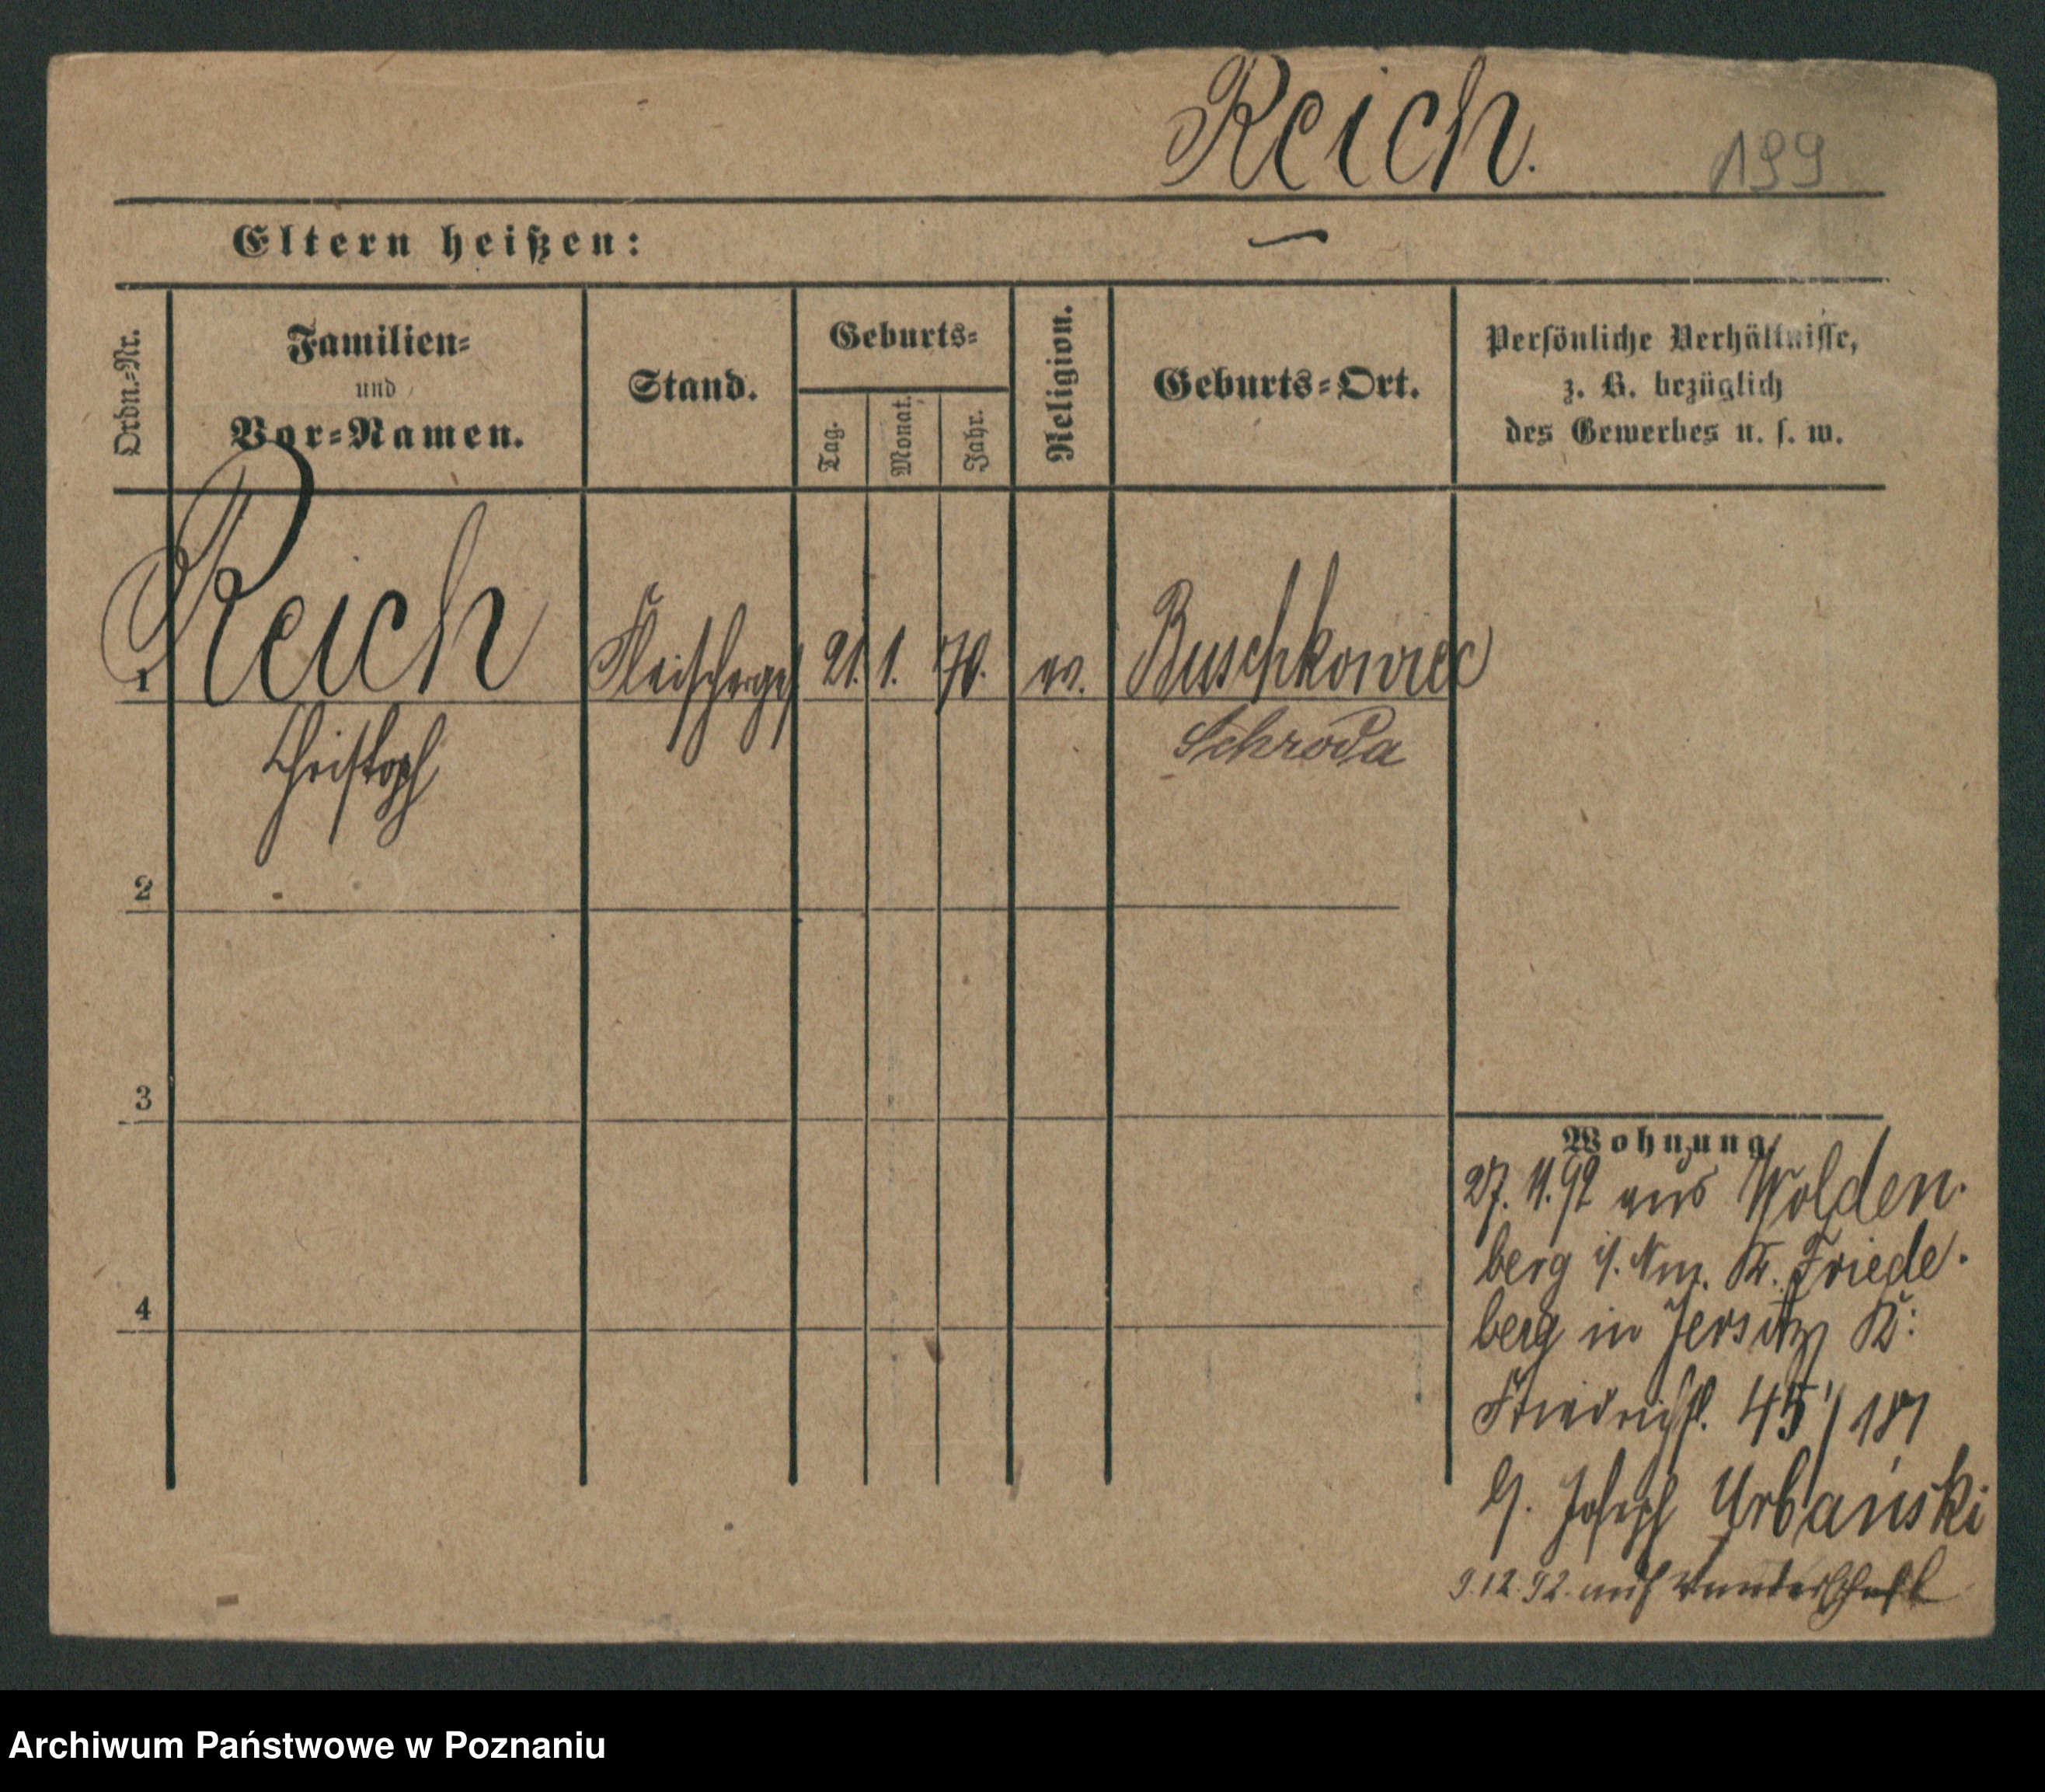 Reich.
199
Eltern heißen: —
Ordn.-Nr.
Familien-
und
Vor-Namen.
Stand.
Geburts-
Tag.
Monat.
Jahr.
Religion.
Geburts-Ort.
Persönliche Verhältnisse,
z. B. bezüglich
des Gewerbes u. s. w.
1 Reich Fleischerges. 21. 1. 70. ev. Buschkowiec
Christoph Schroda
2
3
4
Wohnung
27. 11. 92 aus Wolden-
berg i/. Nm. Kr. Friede-
berg in Jersitz K:
Friedrichst. 45
b/. Joseph Urbański
9.12.92. auf Wanderschaft
Archiwum Państwowe w Poznaniu